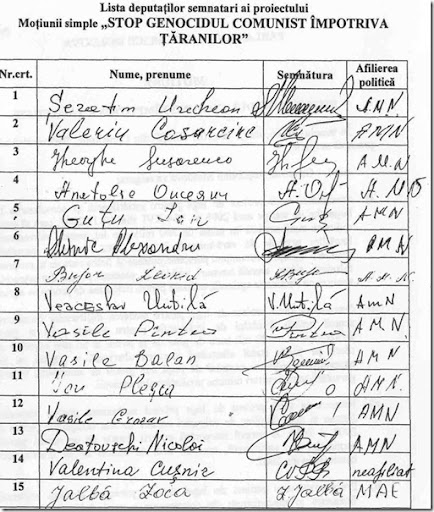 Lista deputaților semnatari ai proiectului
Moțiunii simple „STOP GENOCIDUL COMUNIST ÎMPOTRIVA
ȚĂRANILOR”
Nr.crt. Nume, prenume Semnătura Afilierea politică
1 Serafim Urechean AMN
2 Valeriu Cosarciuc AMN
3 Gheorghe Susarenco A.M.N
4 Anatolie Onceanu A.
5 Guțu Ion Guț AMN
6 Alexandru AMN
7 Bujor Leonid A.M.N.
8 Veaceslav Untilă V.Untilă AMN
9 Vasile Pîntea AMN.
10 Vasile Balan AMN
11 Ion Pleșca AMN.
12 Vasile Grozav AMN
13 Nicolai AMN
14 Valentina Cușnir neafiliat
15 Jalbă Zoea Z Jalbă MAE